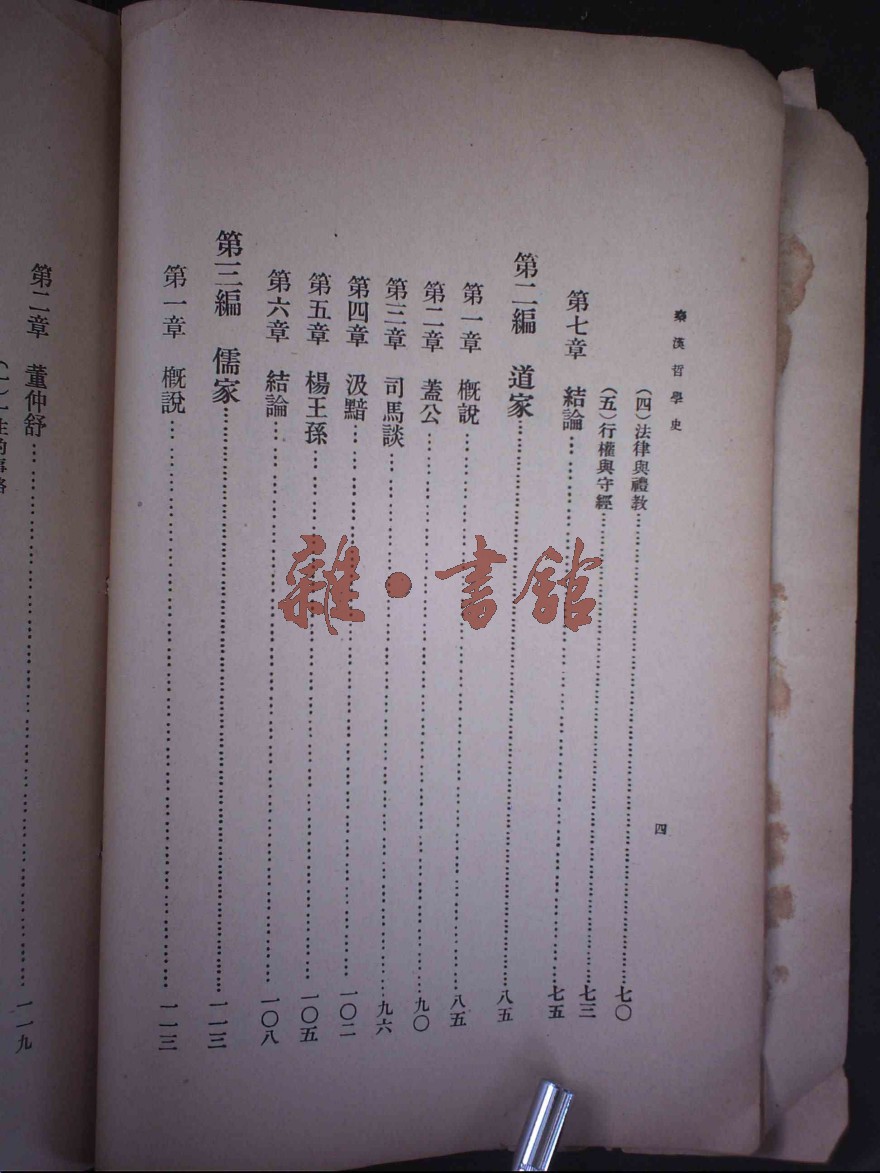 秦漢哲學史
四
（四）法律與禮教……七〇
（五）行權與守經……七三
第七章　結論……七五
第二編　道家……八五
第一章　概說……八五
第二章　蓋公……九〇
第三章　司馬談……九六
第四章　汲黯……一〇二
第五章　楊王孫……一〇五
第六章　結論……一〇八
第三編　儒家……一一三
第一章　概說……一一三
第二章　董仲舒……一一九
雜・書館